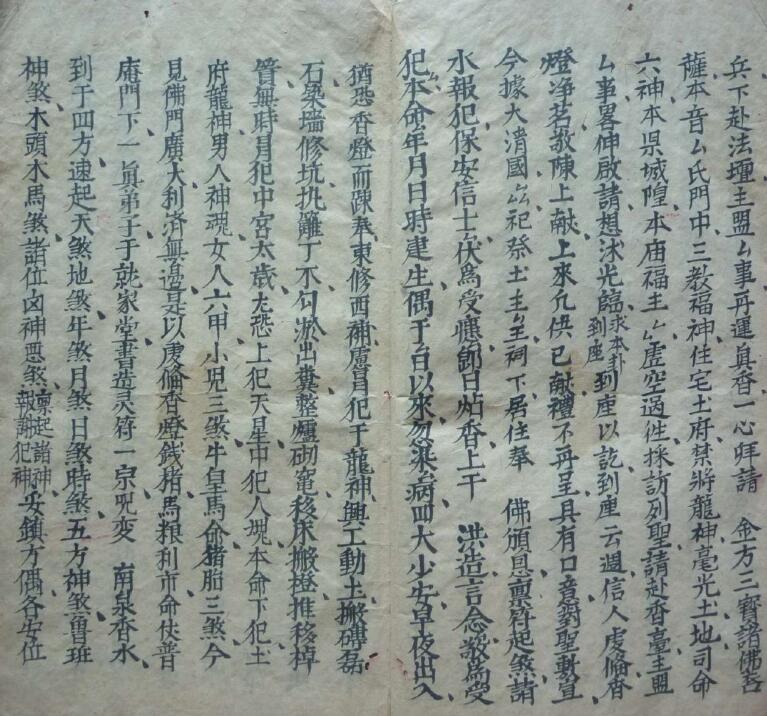 兵下赴法壇主盟厶事再運真香一心拜請 金方三寳諸佛菩
薩本音厶氏門中三教福神住宅土府禁將龍神毫光土地司命
六神本県城隍本庙福主厶厶虛空過徃採訪列聖請赴香臺主盟
厶事畧伸啟請想沐光臨求本卦到座到座以訖到座云週信人虔偹香
燈净茗敢陳上献上來凢供已献禮不再呈具有口意對聖敷宣
今據大清國厶厶祀祭土主厶王祠下居住奉 佛頒恩禀符起煞請
水報犯保安信士厶伏為受慿即日炷香上干 洪造言念厶為受
犯本命年月日時建生偶于厶日以來忽染厶病四大少安早夜出入
猶恐香燈而踈奉東修西補慮月犯于龍神興工動土搬磚磊
石築墙修坑扎籬丁不匀淤出糞整爐砌竃移床搬櫈推移棹
管無時月犯中宮太歲尤恐上犯天星中犯人塊本命下犯土
府龍神男人神魂女人六甲小児三煞牛皇馬命猪胎三煞今
見佛門廣大利済無邊是以虔偹香燈錢猪馬粮利市命仗普
庵門下一眞弟子于就家堂書造灵符一宗呪变 南泉香水
到于四方速起天煞地煞年煞月煞日煞時煞五方神煞魯班
神煞木頭木馬煞諸位凶神悪煞禀起諸神報謝犯神妥鎮方隅各安位